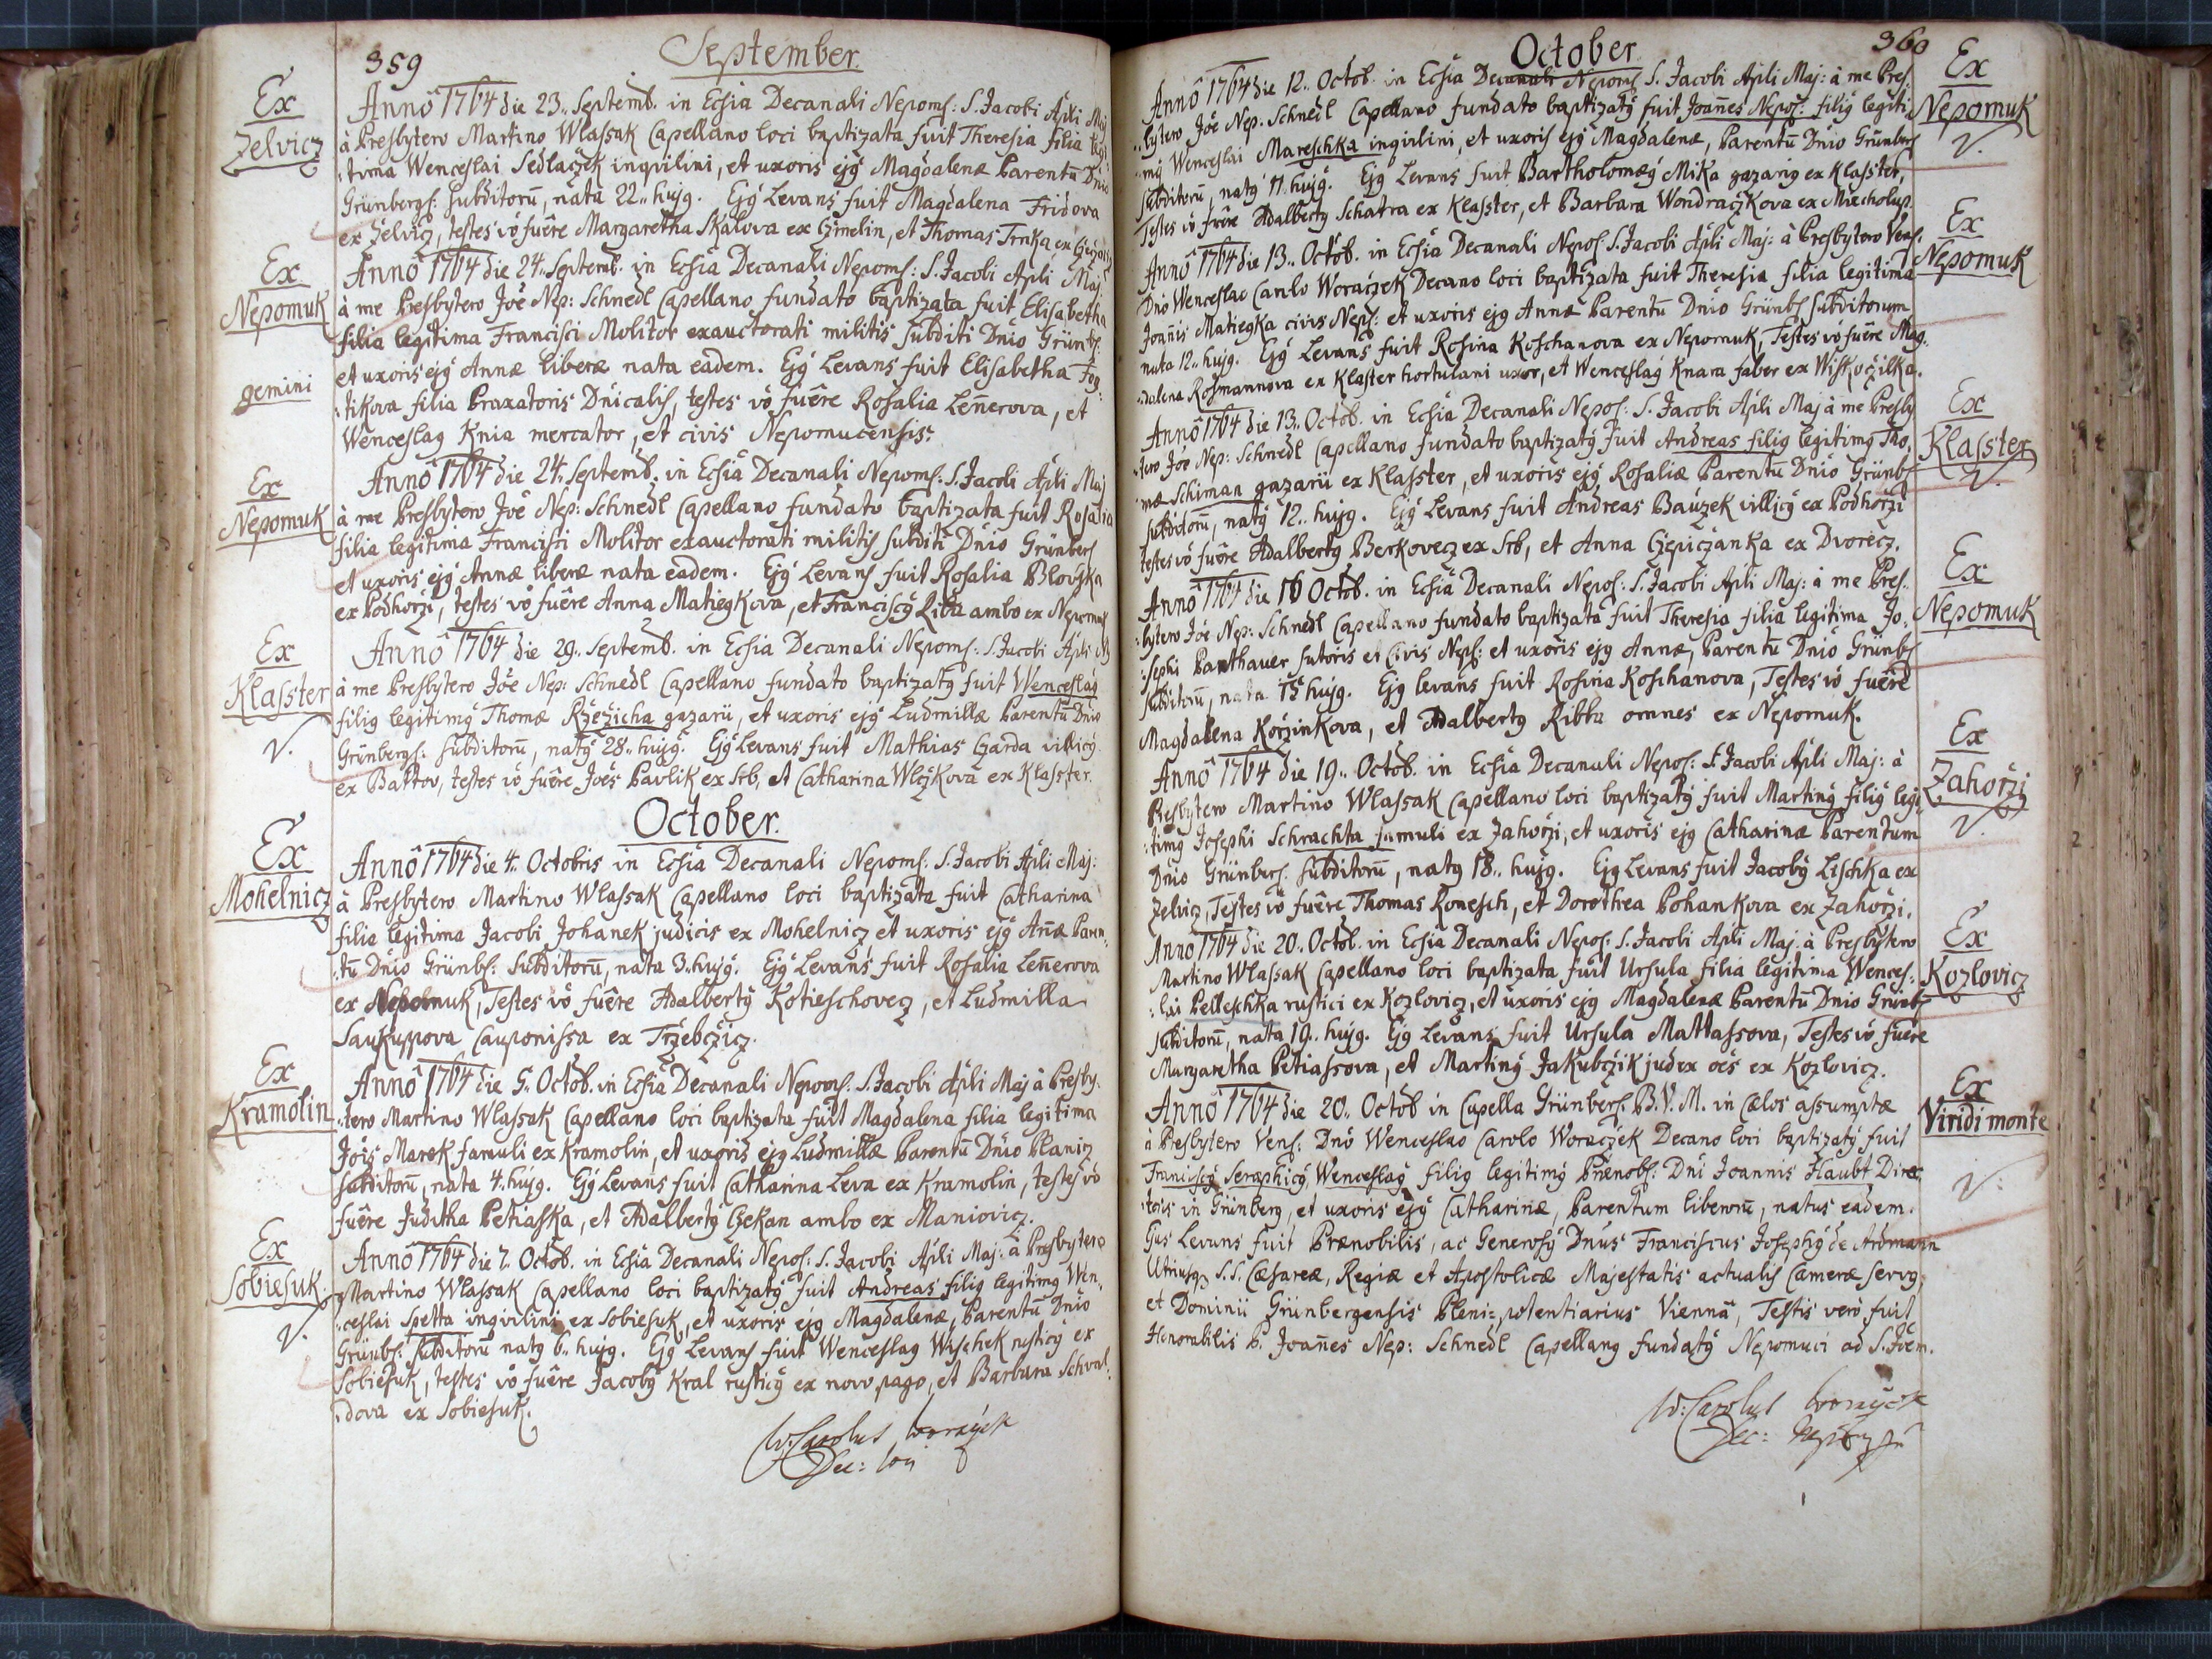 359
September.
Ex
Zelvicz
Anno 1764 die 23.. Septemb. in Ecsia Decanali Nepoms: S. Jacobi Apli Maj
à Presbytero Martino Wlassak Capellano loci baptizata fuit Theresia filia legi:
:tima Wenceslai Sedlaczek inqvilini, et uxoris ejg Magdalenæ Parentũ Dnio
Grünbergs: subditorũ, nata 22.. hujg. Ejg Levans fuit Magdalena Fridova
ex Zelvicz, testes vo fuêre Margaretha Skalova ex Czmelin, et Thomas Trnka ex
Ex
Nepomuk
gemini
Anno 1764 die 24.. Septemb. in Ecsia Decanali Nepoms: S. Jacobi Apli Maj:
à me Presbytero Joe Nep: Schnedl Capellano fundato baptizata fuit Elisabetha
filia legitima Francisci Molitor exauctorati militis subditi Dnio Grünbs:
et uxoris ejg Annæ liberæ nata eadem. Ejg Levans fuit Elisabetha
:tikova filia Braxatoris Dnicalis, testes vo fuêre Rosalia Lennerova, et
Wenceslag Knia mercator, et civis Nepomucensis:
Ex
Nepomuk
Anno 1764 die 24. Septemb. in Ecsia Decanali Nepoms: S. Jacobi Apli Maj
à me Presbytero Joe Nep: Schnedl Capellano fundato baptizata fuit Rosalia
filia legitima Francisci Molitor exauctorati militis subditi Dnio Grünbers
et uxoris ejg Annæ liberæ nata eadem. Ejg Levans fuit Rosalia Blovska
ex Podhorzi, testes vo fuêre Anna Matiegkova, et Franciscg Riba ambo ex Nepomuk
Ex
Klasster
V.
Anno 1764 die 29.. Septemb. in Ecsia Decanali Nepoms: S. Jacobi Apli Mj
à me Presbytero Joe Nep: Schnedl Capellano fundato baptizatg fuit Wenceslag
filig legitimg Thomæ Rzezicha gazarii, et uxoris ejg Ludmillæ Parentũ Dnio
Grünbergs: subditorũ, natg 28.. hujg. Ejg Levans fuit Mathias Czarda villicg
ex Battov, testes vo fuêre Joes Pavlik ex Srb, et Catharina Wlczkova ex Klasster.
October.
Ex
Mohelnicz
Anno 1764 die 4.. Octobris in Ecsia Decanali Nepoms: S. Jacobi Apli Maj:
à Presbytero Martino Wlassak Capellano loci baptizata fuit Catharina
filia legitima Jacobi Johanek judicis ex Mohelnicz et uxoris ejg Annæ Paren
:tũ Dnio Grünbs: subditorũ, nata 3. hujg. Ejg Levans fuit Rosalia Lennerova
ex Nepomuk, Testes vo fuêre Adalbertg Kotieschovecz, et Ludmilla
Saukuppova Cauponissa ex Trzebczicz.
Ex
Kramolin
Anno 1764 die 5. Octob. in Ecsia Decanali Nepoms: S. Jacobi Apli Maj à Presby:
:tero Martino Wlassak Capellano loci baptizata fuit Magdalena filia legitima
Jois Marek famuli ex Kramolin, et uxoris ejg Ludmillæ Parentũ Dnio Planicz
subditorũ, nata 4. hujg. Ejg Levans fuit Catharina Leva ex Kramolin, testes vo
fuêre Juditha Petiaska, et Adalbertg Czekan ambo ex Maniovicz.
Ex
Sobiesuk
V.
Anno 1764 die 7. Octob. in Ecsia Decanali Nepos: S. Jacobi Apli Maj: à Presbytero
Martino Wlassak Capellano loci baptizatg fuit Andreas filig legitimg Wen:
:ceslai Spetta inqvilini ex Sobiesuk, et uxoris ejg Magdalenæ, Parentũ Dnio
Grünbs: subditorũ natg 6.. hujg. Ejg Levans fuit Wenceslag Wischek rusticg ex
Sobiesuk, testes vo fuêre Jacobg Kral rusticg ex novo pago, et Barbara Schval:
:dova ex Sobiesuk.
W: Carolus Woraczek
Dec: loci
October
360
Ex
Nepomuk
V.
Anno 1764 die 12.. Octob. in Ecsia Decanali Nepoms S. Jacobi Apli Maj: à me Pres:
:bytero Joe Nep: Schnedl Capellano fundato baptizatg fuit Joannes Nepos: filig legiti:
:mg Wenceslai Mareschka inqvilini, et uxoris ejg Magdalenæ, Parentũ Dnio Grünbers
subditorũ, natg 11. hujg. Ejg Levans fuit Bartholomæg Mika gazarig ex Klasster,
Testes vo fuêre Adalbertg Schatra ex Klasster, et Barbara Wondraczkova ex Miecholup.
Ex
Nepomuk
Anno 1764 die 13.. Octob. in Ecsia Decanali Nepos: S. Jacobi Apli Maj: à Presbytero Vens.
Dno Wenceslao Carolo Woraczek Decano loci baptizata fuit Theresia filia legitima
Joannis Matiegka civis Neps: et uxoris ejg Annæ Parentũ Dnio Grünbs subditorum
nata 12.. hujg. Ejg Levans fuit Rosina Koschanova ex Nepomuk, Testes vo fuêre Mag:
:dalena Rosmannova ex Klasster hortulani uxor, et Wenceslag Knara faber ex Wiskoczilka.
Ex
Klasster
V.
Anno 1764 die 13.. Octob. in Ecsia Decanali Nepos: S. Jacobi Apli Maj à me Presby
:tero Joe Nep: Schnedl Capellano fundato baptizatg fuit Andreas filig legitimg Tho:
:mæ Schiman gazarii ex Klasster, et uxoris ejg Rosaliæ Parentũ Dnio Grünbs
subditorũ, natg 12.. hujg. Ejg Levans fuit Andreas Bauzek villicg ex Podhorzi
testes vo fuêre Adalbertg Berkovecz ex Srb, et Anna Czepiczanka ex Dvorecz.
Ex
Nepomuk
Anno 1764 die 16 Octob. in Ecsia Decanali Nepos: S. Jacobi Apli Maj: à me Pres:
:bytero Joe Nep: Schnedl Capellano fundato baptizata fuit Theresia filia legitima Jo:
:sephi Panthauer sutoris et Civis Neps: et uxoris ejg Annæ, Parentũ Dnio Grünbs
subditorũ, nata 15 hujg. Ejg levans fuit Rosina Koschanova, Testes vo fuêre
Magdalena Korzinkova, et Adalbertg Ribka omnes ex Nepomuk.
Ex
Zahorzi
V.
Anno 1764 die 19.. Octob. in Ecsia Decanali Nepos: S. Jacobi Apli Maj: à
Presbytero Martino Wlassak Capellano loci baptizatg fuit Marting filig legi
:timg Josephi Schrachta famuli ex Zahorzi, et uxoris ejg Catharinæ Parentum
Dnio Grünbers: subditorũ, natg 18.. hujg. Ejg Levans fuit Jacobg Lischka ex
Zelvicz, Testes vo fuêre Thomas Ronesch, et Dorothea Pohankova ex Zahorzi.
Ex
Kozlovicz
Anno 1764 die 20.. Octob. in Ecsia Decanali Nepos: S. Jacobi Apli Maj. à Presbytero
Martino Wlassak Capellano loci baptizata fuit Ursula filia legitima Wences:
:lai Pelleschka rustici ex Kozlovicz, et uxoris ejg Magdalenæ Parentũ Dnio Grünbs
subditorũ, nata 19.. hujg. Ejg Levans fuit Ursula Mattassova, Testes vo fuêre
Margaretha Petiassova, et Marting Jakubczik judex oes ex Kozlovicz.
Ex
Viridi monte
V.
Anno 1764 die 20.. Octob in Capella Grünbers: B.V.M. in Cælos assumptæ
à Presbytero Vens: Dno Wenceslao Carolo Woraczek Decano loci baptizatg fuit
Franciscg Seraphicg Wenceslag filig legitimg Prænobs: Dni Joannis Haubt Direc
:toris in Grünberg, et uxoris ejg Catharinæ, Parentum liberorũ, natus eadem.
Ejus Levans fuit Prænobilis, ac Generosg Dnus Franciscus Josephg de Ardmann
Utriusq S.S. Cæsareæ, Regiæ et Apostolicæ Majestatis actualis Cameræ servg,
et Dominii Grünbergensis Pleni=potentiarius Viennã, Testis vero fuit
Honorabilis P. Joannes Nep: Schnedl Capellang fundatg Nepomuci ad S. Joem.
W: Carolus Woraczek
Dec: